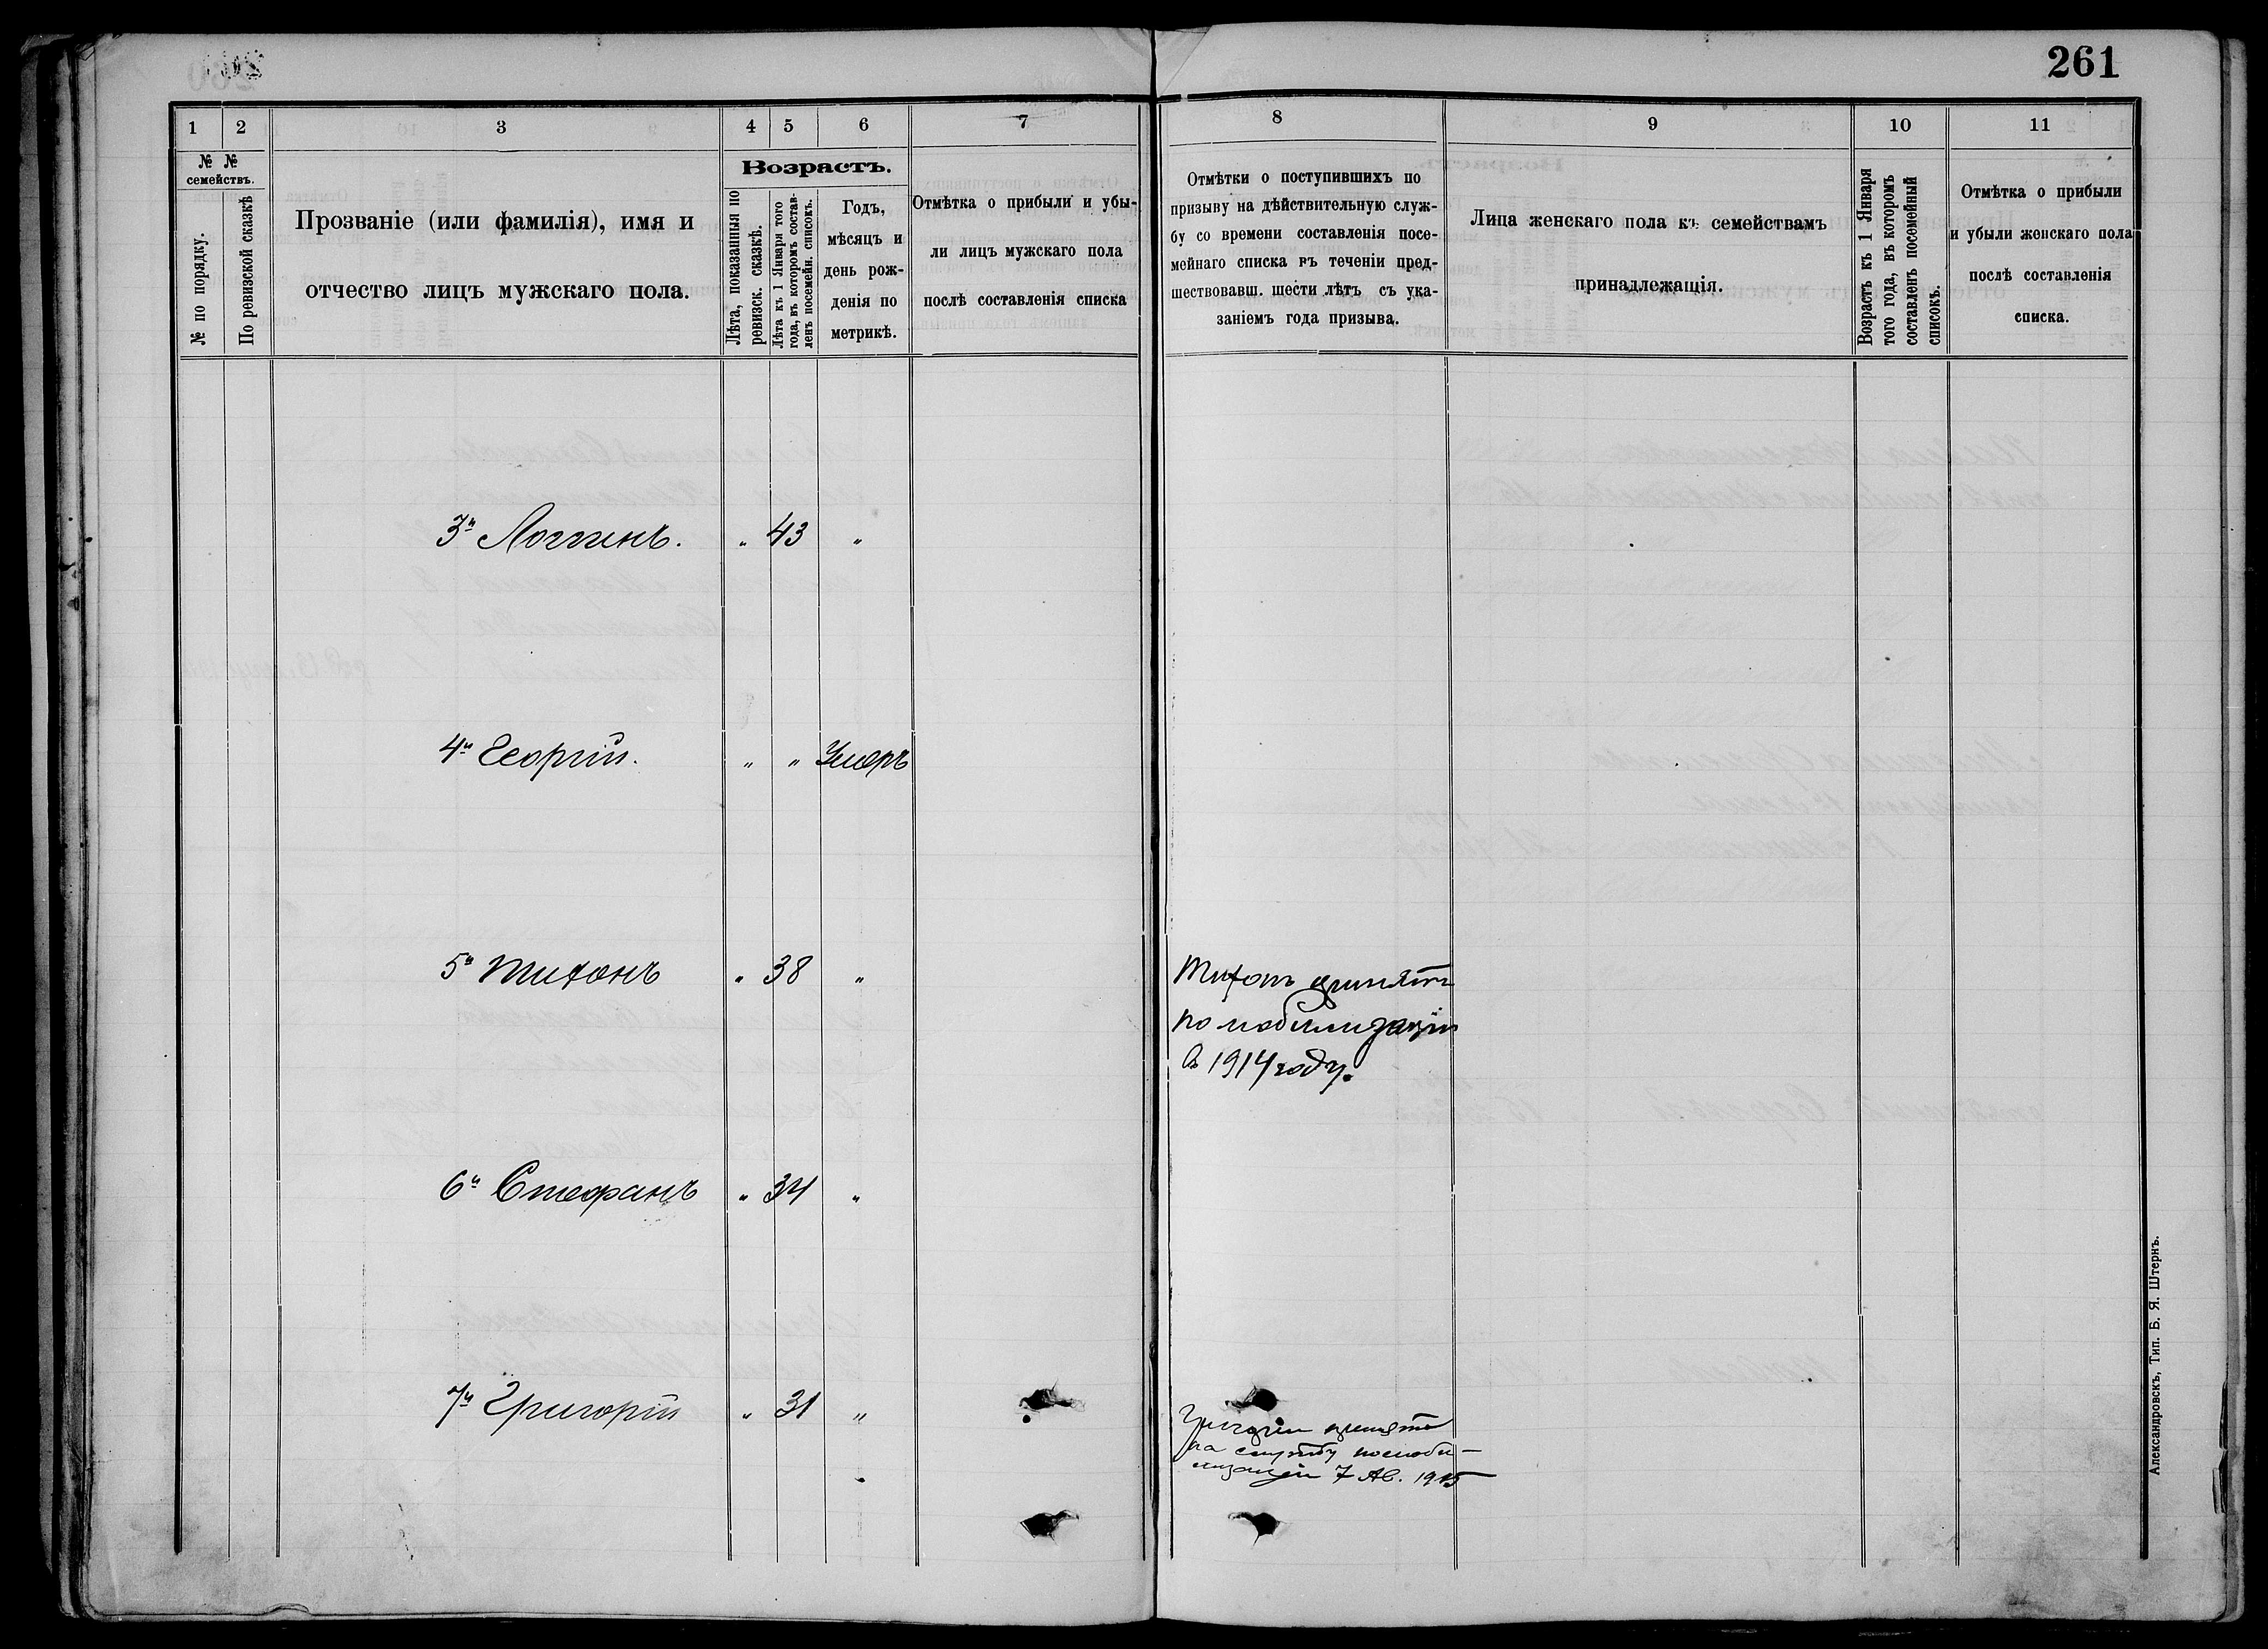 261
1 2 3 4 5 6 7 8 9 10 11
№ №
семействъ.
№ по порядку.
По ревизской сказкѣ
Прозваніе (или фамилія), имя и
отчество лицъ мужскаго пола.
Возрастъ.
Лѣта, показанныя по
ревизск. сказкѣ.
Лѣта къ 1 Января того
года, въ которомъ состав-
ленъ посемейн. списокъ.
Годъ,
мѣсяцъ и
день рож-
денія по
метрикѣ.
Отмѣтка о прибыли и убы-
ли лицъ мужскаго пола
послѣ составленія списка
Отмѣтки о поступившихъ по
призыву на дѣйствительную служ-
бу со времени составленія посе-
мейнаго списка въ теченіи пред-
шествовавш. шести лѣтъ съ ука-
заніемъ года призыва.
Лица женскаго пола къ семействамъ
принадлежащія.
Возрастъ къ 1 Января
того года, въ которомъ
составленъ посемейный
списокъ.
Отмѣтка о прибыли
и убыли женскаго пола
послѣ составленія
списка.
3й Логгинъ. " 43 "
4й Георгій. " " Умеръ
5й Тихонъ " 38 "
Тихонъ принятъ
по мобилизаціи
въ 1914 году.
6й Стефанъ " 34 "
7й Григорій " 31 "
Григорій принятъ
на службу по моби-
лизаціи 7 Ав. 1915
Александровскъ, Тип. Б. Я. Штернъ.